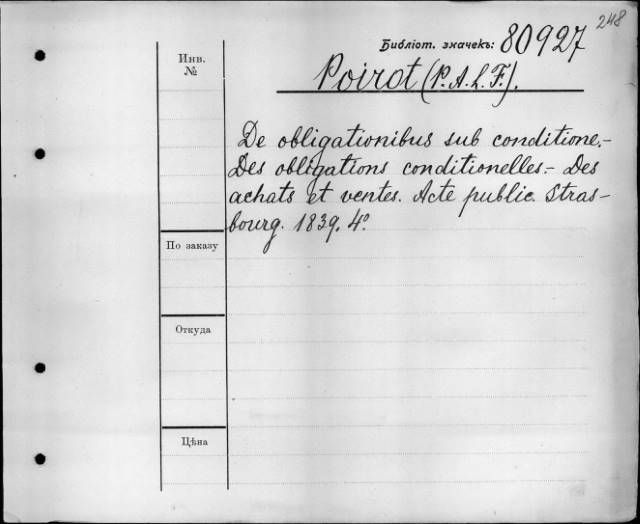 248
Библіот. значекъ: 80927
Инв.
№
Poirot (P. A. L. F.).
De obligationibus sub conditione.-
Des obligations conditionelles.- Des
achats et ventes. Acte public. Stras-
bourg. 1839. 4°.
По заказу
Откуда
Цѣна